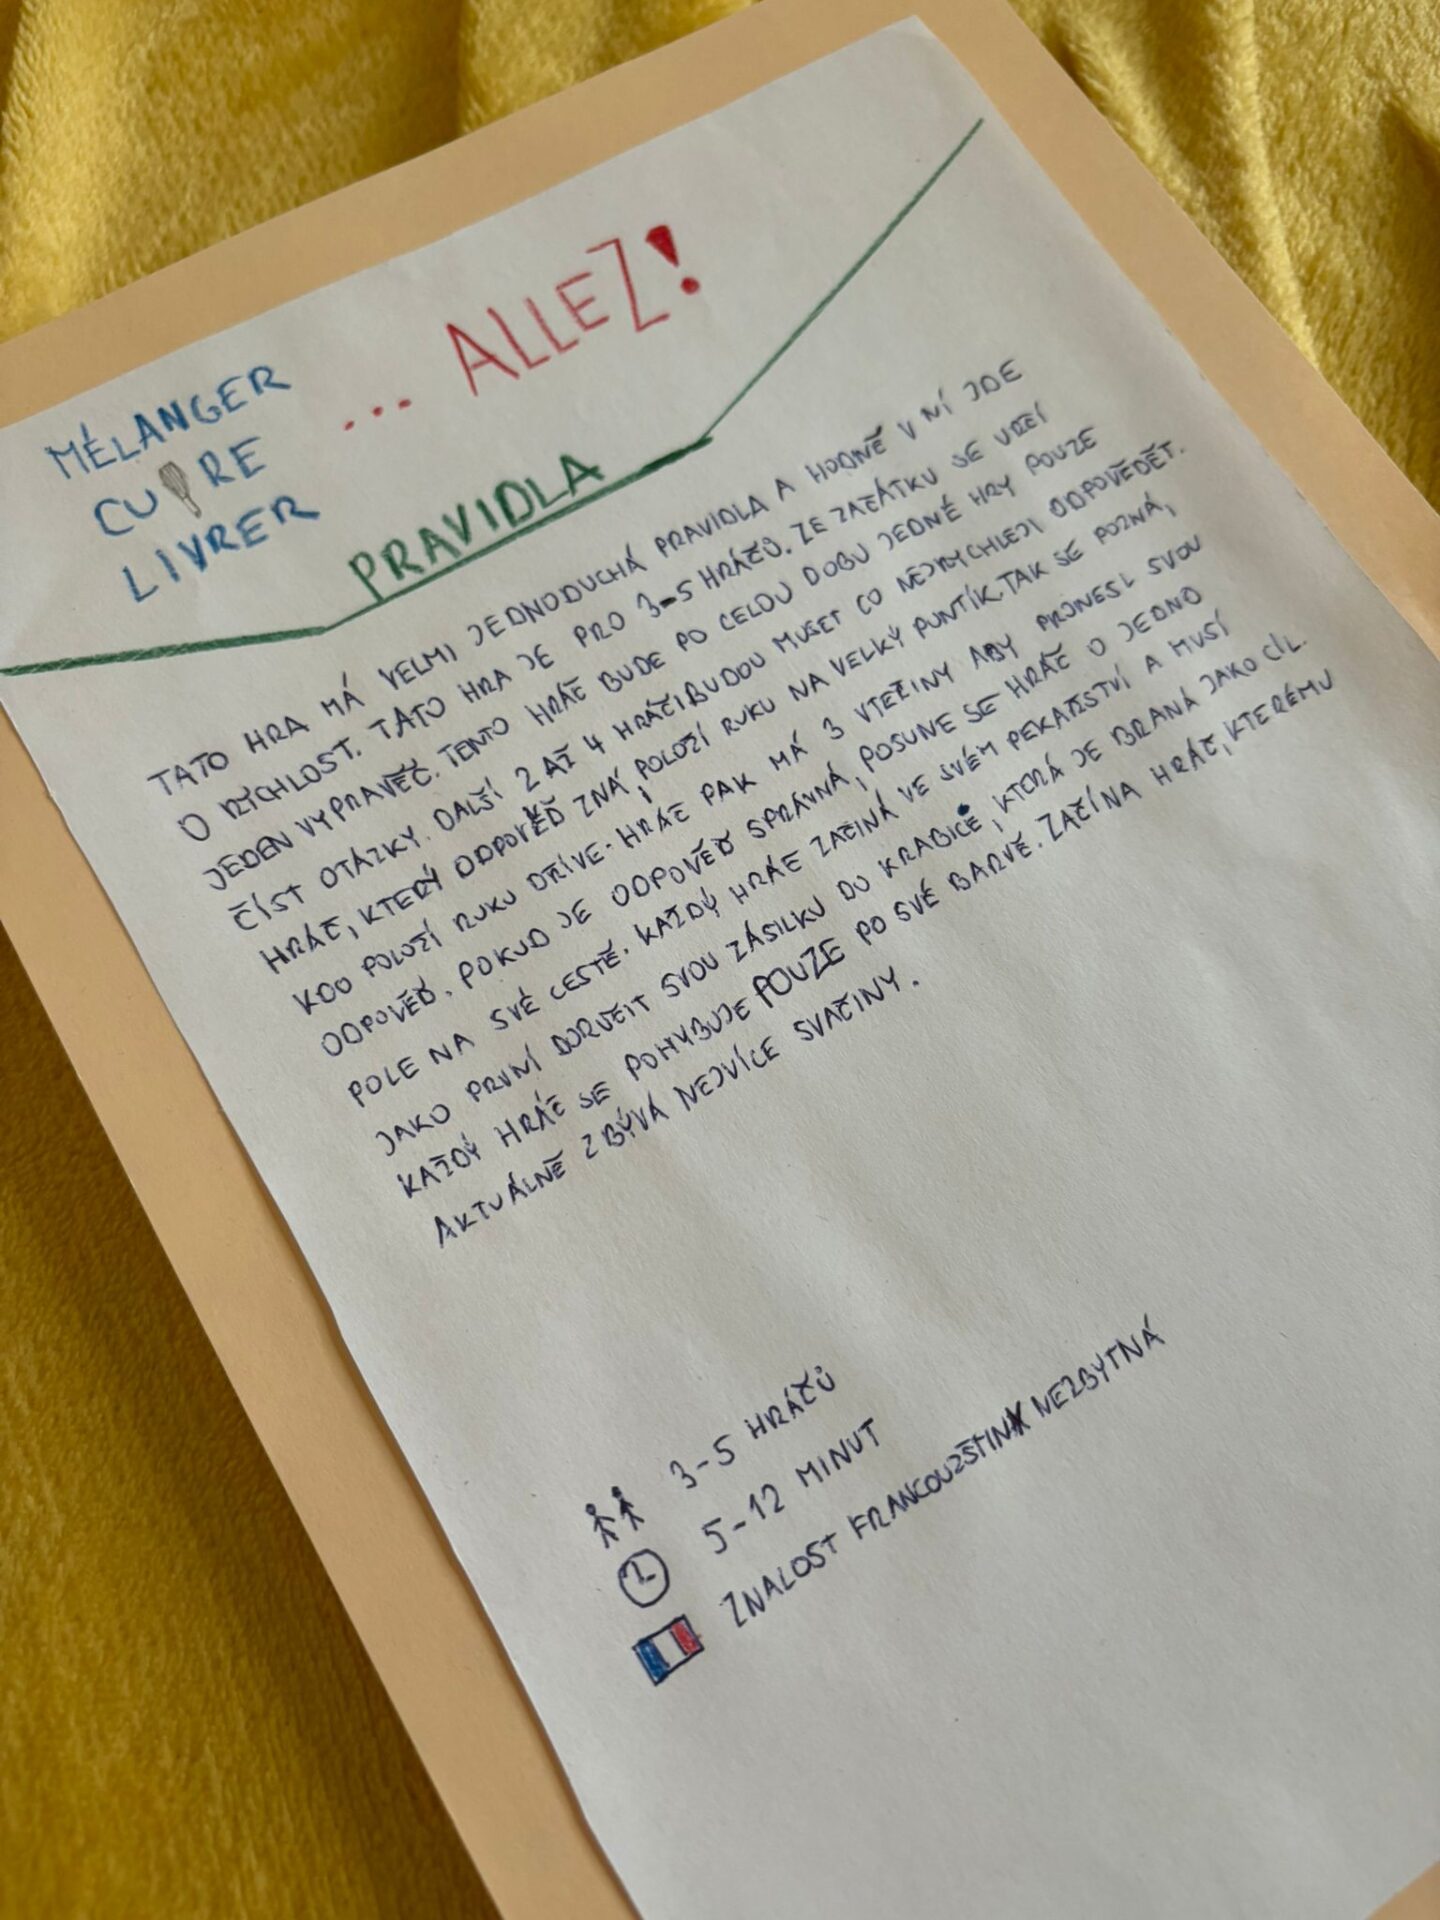 MÉLANGER
CUIRE
LIVRER
... ALLEZ!
PRAVIDLA
TATO HRA MÁ VELMI JEDNODUCHÁ PRAVIDLA A HODNĚ V NÍ JDE
O RYCHLOST. TATO HRA JE PRO 3-5 HRÁČŮ. ZE ZAČÁTKU SE URČÍ
JEDEN VYPRAVĚČ. TENTO HRÁČ BUDE PO CELOU DOBU JEDNÉ HRY POUZE
ČÍST OTÁZKY. DALŠÍ 2 AŽ 4 HRÁČI BUDOU MUSET CO NEJRYCHLEJI ODPOVĚDĚT.
HRÁČ, KTERÝ ODPOVĚĎ ZNÁ, POLOŽÍ RUKU NA VELKÝ PUNTÍK. TAK SE POZNÁ,
KDO POLOŽÍ RUKU DŘÍVE. HRÁČ PAK MÁ 3 VTEŘINY ABY PRONESL SVOU
ODPOVĚĎ. POKUD JE ODPOVĚĎ SPRÁVNÁ, POSUNE SE HRÁČ O JEDNO
POLE NA SVÉ CESTĚ. KAŽDÝ HRÁČ ZAČÍNÁ VE SVÉM PEKAŘSTVÍ A MUSÍ
JAKO PRVNÍ DORUČIT SVOU ZÁSILKU DO KRABICE, KTERÁ JE BRANÁ JAKO CÍL.
KAŽDÝ HRÁČ SE POHYBUJE POUZE PO SVÉ BARVĚ. ZAČÍNA HRÁČ, KTERÉMU
AKTUÁLNĚ ZBÝVÁ NEJVÍCE SVAČINY.
3-5 HRÁČŮ
5-12 MINUT
ZNALOST FRANCOUZŠTINY NEZBYTNÁ